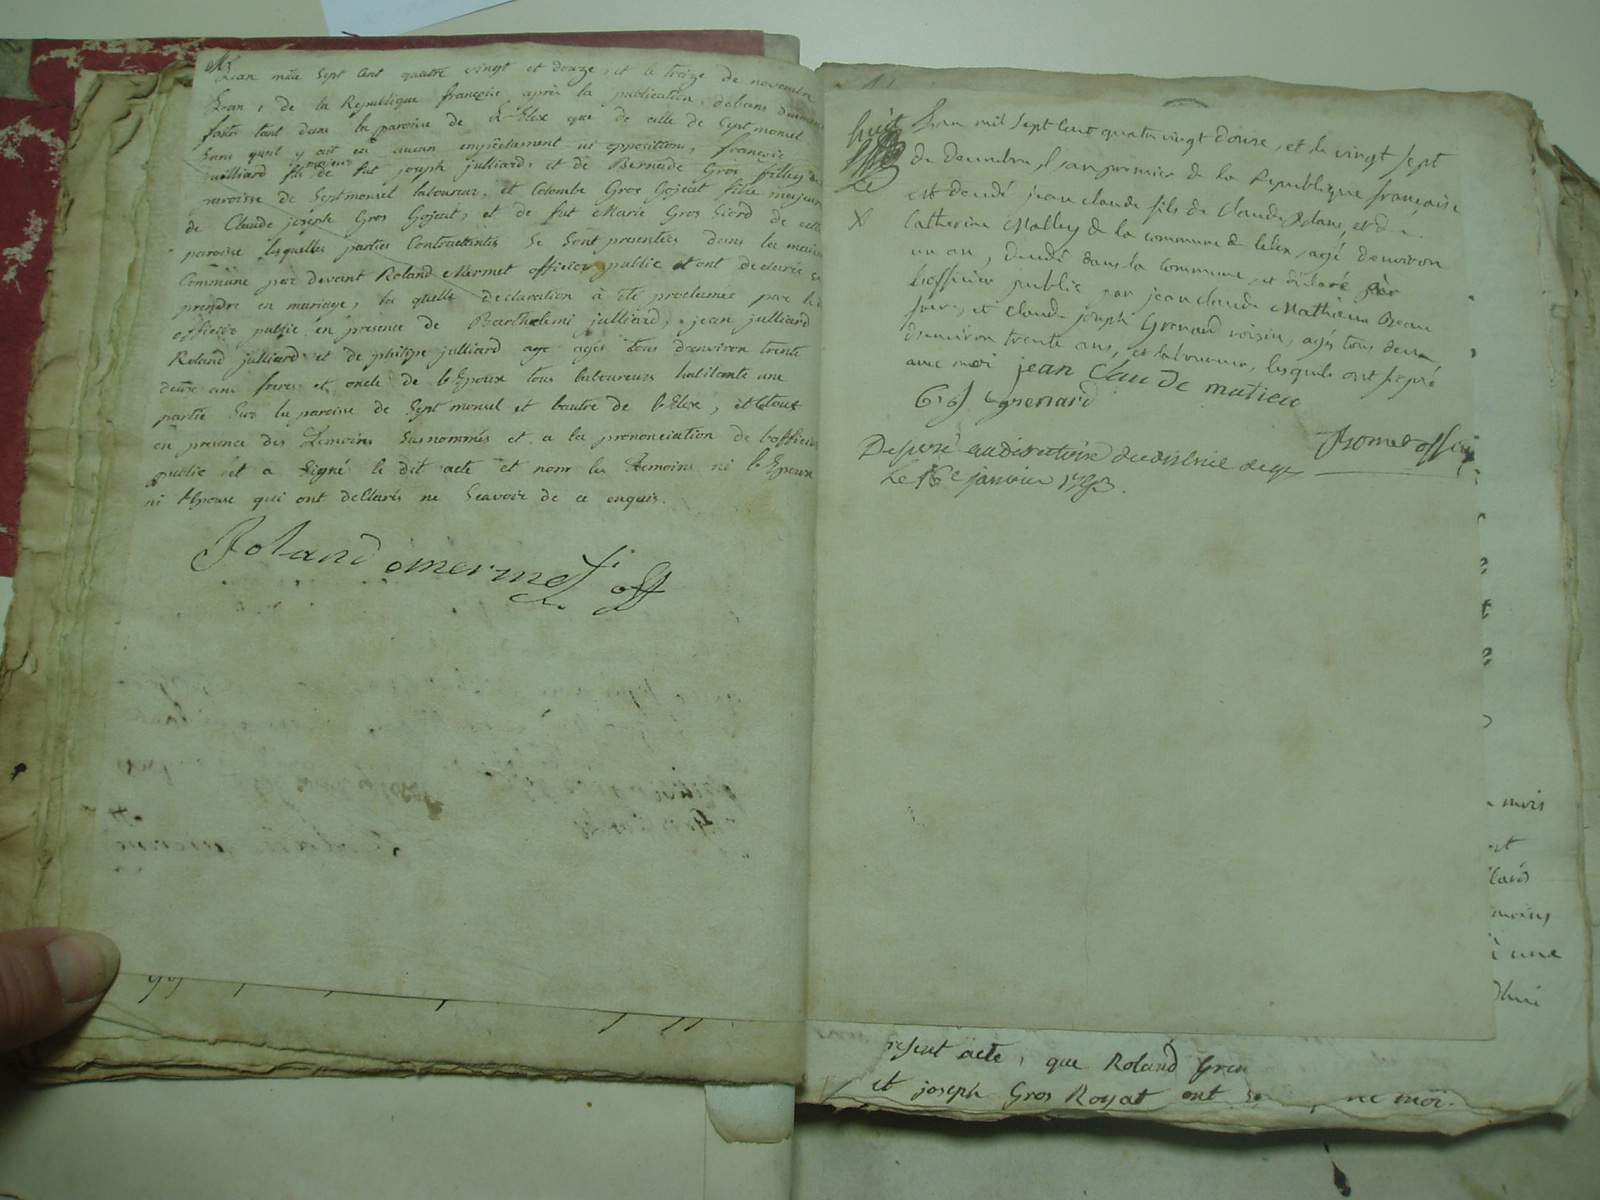 Lan mil Sept Cent quatre vingt et douze, et le treize de novembre
Lan 1 de la Republique françoise après la publication debans
faite tant dans la paroise de Lelex que de celle de Septmoncel
Sans quil y ait eü aucun empèchement ni opposition, françois
majeur
juilliard fils de fut joseph julliard, et de Bernade Gros filley de
paroise de Septmoncel laboureur, et Colombe Gros Gojeat fille majeure
de Claude joseph Gros Gojeat, et de fut Marie Gros Giord de cette
paroise lesquelles parties Contractantes Se Sont presentées dans la maison
Commune par devant Roland Mermet officier public et ont declarés se
prendre en mariage, la quelle declaration à été proclamée par le
officier public en presence de Barthelemi julliard, jean julliard
Roland julliard et de philipe julliard age agés tous denviron trente
deux ans freres et oncle de lEpoux tous laboureurs habitants une
partie Sur la paroise de Septmoncel et lautre de lElex, et tout
en presence des Temoins Susnommés et a la prononciation de lofficier
public et a Signé le dit acte et nom les Temoins ni lEpoux
ni lEpouse qui ont declarés ne Scavoir de ce enquis.
Roland Mermet off
huit
Le
X
Lan mil Sept Cent quatre vingt douze, et le vingt Sept
du decembre, lan premier de la Republique françaisse
est decedé jean claude fils de Claude et de
Catherine Malley de la commune de lelex, agé denviron
un an, decedé dans la commune, et déclaré par
Lofficier public par jean claude Mathieu Beau
frere, et Claude joseph Grenard voisin, agés tous deux
denviron trente ans, et laboureur, lesquels ont signé
avec moi jean claude matieu
Grenard
officier
Deposé au directoire du district de gex
Le 16e janvier 1793.
mois
moins
à une
resent acte, que Roland Gren
et joseph Gros Royat ont ne moi.